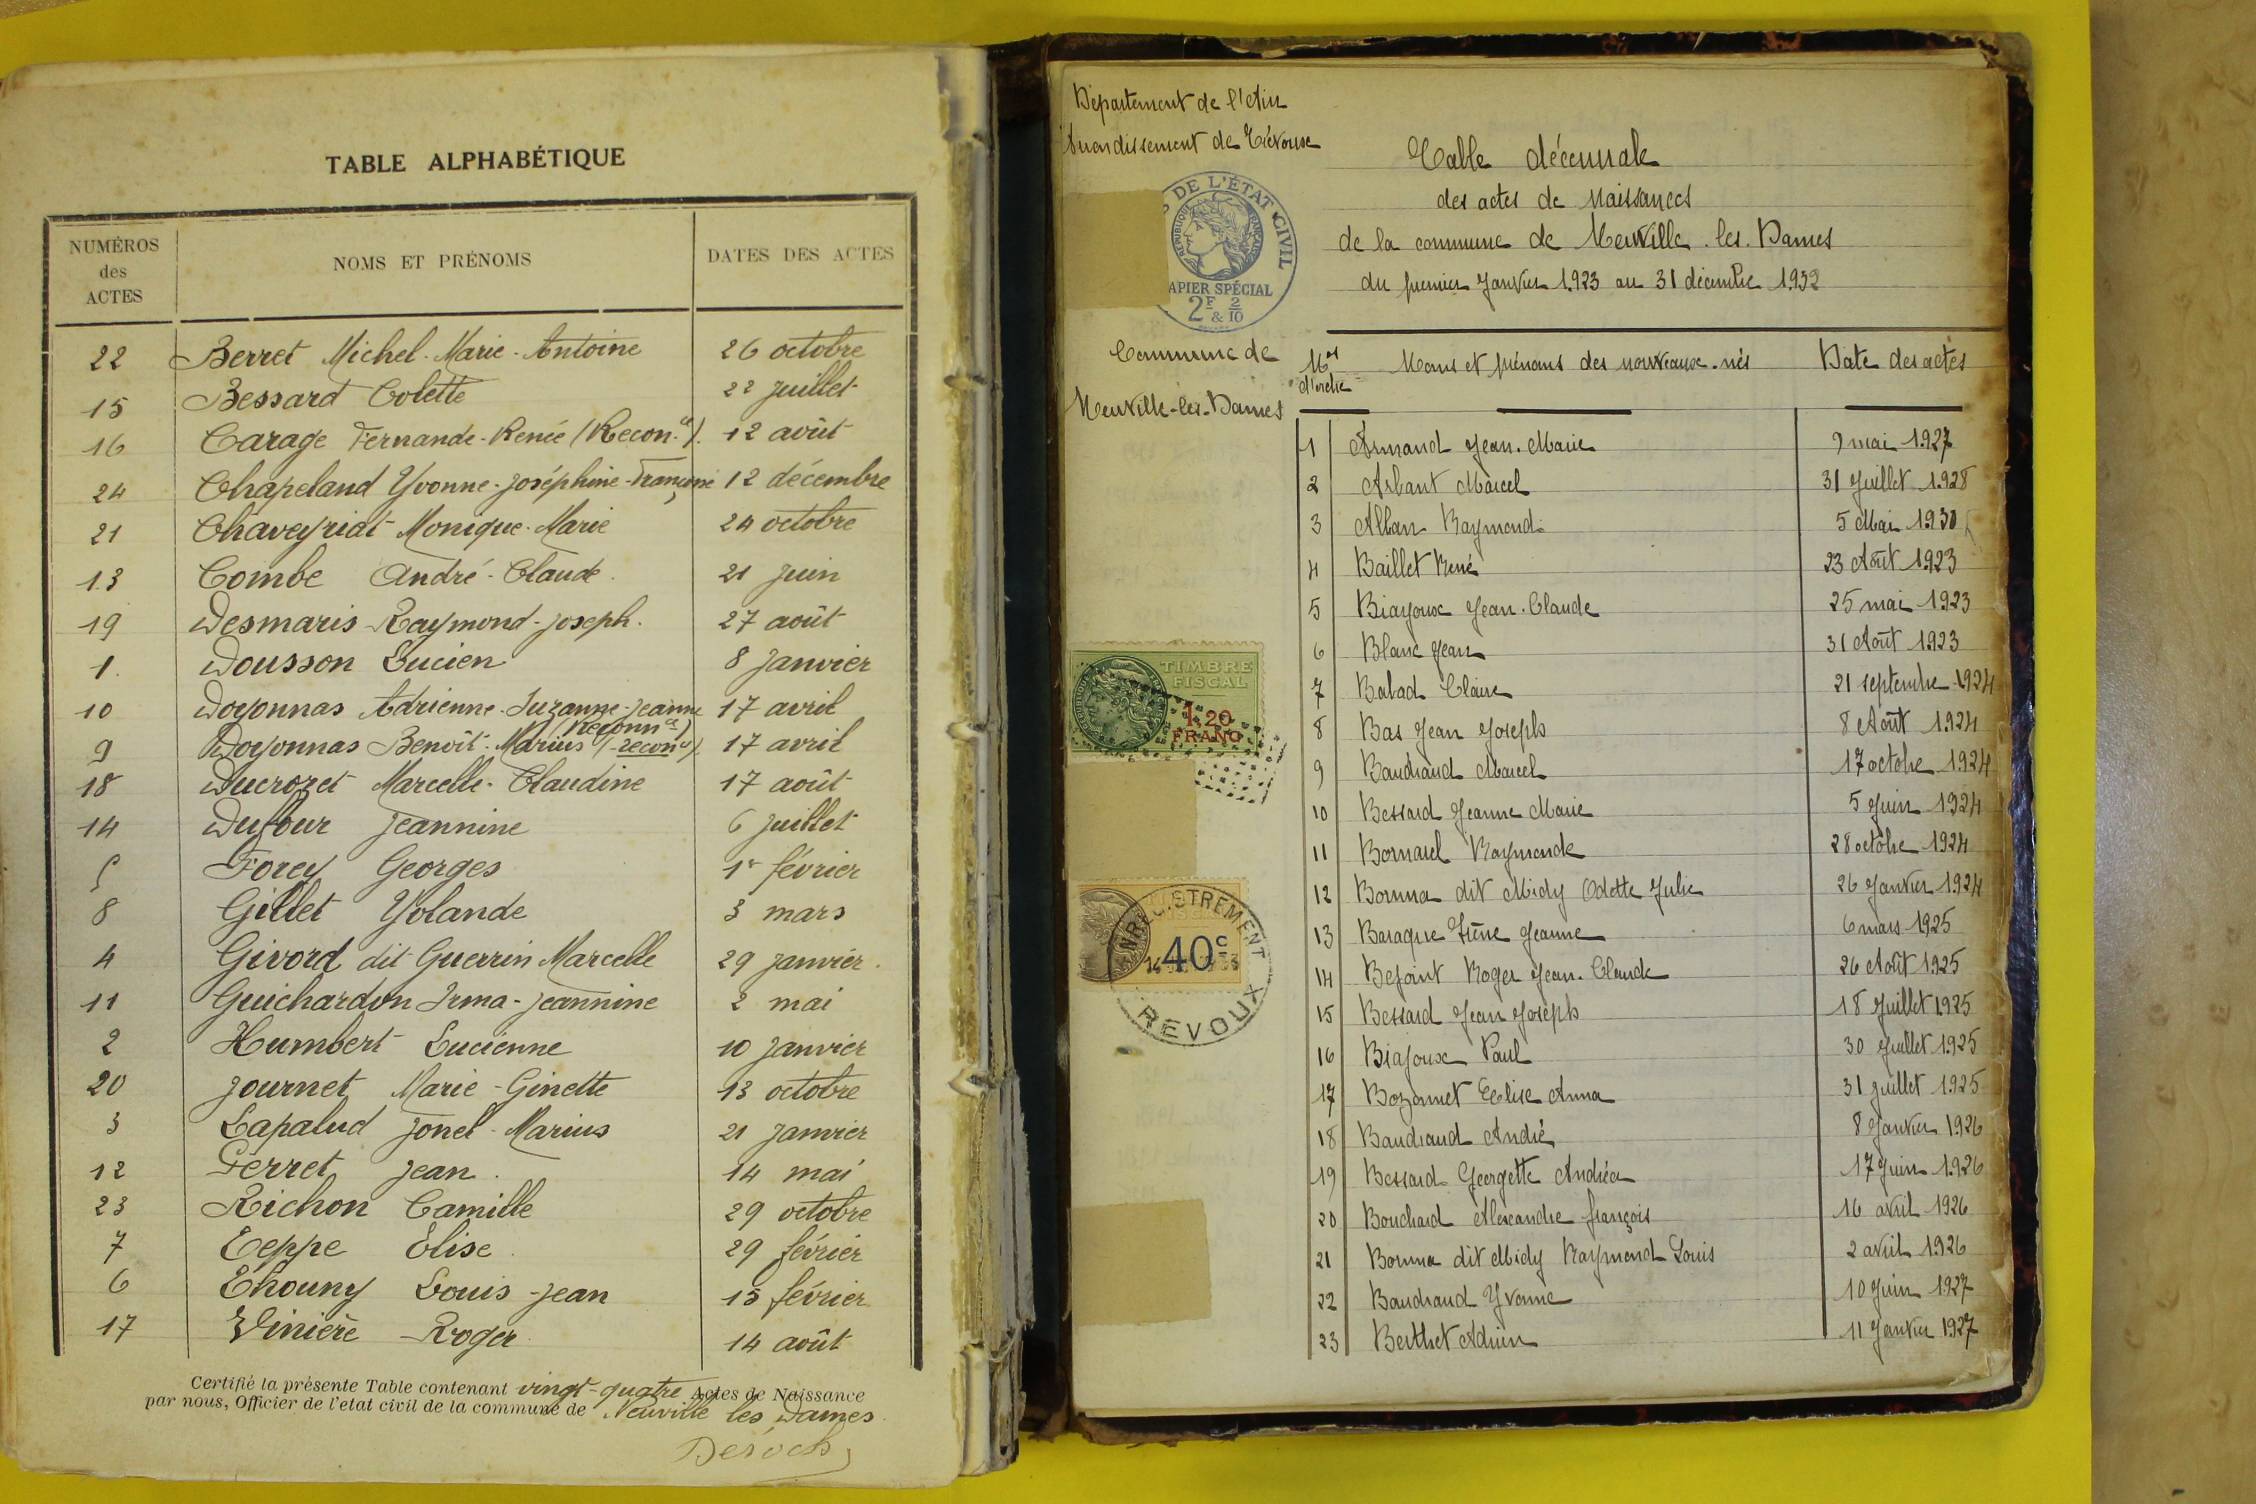 TABLE ALPHABÉTIQUE
NUMÉROS des ACTES NOMS ET PRÉNOMS DATES DES ACTES
22 Berret Michel-Marie-Antoine 26 octobre
15 Bessard Colette 22 juillet
16 Carage Fernande-Renée (Recon.ce). 12 août
24 Chapeland Yvonne-Joséphine-Françoise 12 décembre
21 Chaveyriat Monique-Marie 24 octobre
13 Combe André-Claude. 21 juin
19 Desmaris Raymond-Joseph. 27 août
1. Dousson Lucien 8 janvier
10 Doyonnas Adrienne-Suzanne-Jeanne 17 avril
(Reconn.ce)
9 Doyonnas Benoît-Marius (recon.ce) 17 avril
18 Ducrozet Marcelle-Claudine 17 août
14 Dufour Jeannine 6 juillet
5 Forey Georges 1r février
8 Gillet Yolande 3 mars
4 Givord dit Guerrin Marcelle 29 janvier.
11 Guichardon Irma-Jeannine 2 mai
2 Humbert Lucienne 10 janvier
20 Journet Marie-Ginette 13 octobre
3 Lapalud Jonel-Marius 21 janvier
12 Perret Jean. 14 mai
23 Richon Camille 29 octobre
7 Teppe Elise. 29 février
6 Thouny Louis-Jean 15 février
17 Vinière Roger 14 août
Certifié la présente Table contenant vingt-quatre Actes de Naissance
par nous, Officier de l'etat civil de la commune de Neuville les Dames.
Département de l'Ain
Arrondissement de Trévoux
Table décennale
des actes de Naissances
de la commune de Neuville-les-Dames
du premier Janvier 1923 au 31 décembre 1932
DE L'ÉTAT CIVIL
RÉPUBLIQUE FRANÇAISE
APIER SPÉCIAL
2F & 2/10
Commune de
Neuville-les-Dames
Nos d'ordre Noms et prénoms des nouveaux-nés Date des actes
TIMBRE
FISCAL
1.20
FRANC
ENREGISTREMENT
40c
REVOUX
1 Armand Jean-Marie 9 mai 1927
2 Arbant Marcel 31 Juillet 1928
3 Alban Raymond 5 Mai 1930
4 Baillet René 23 Août 1923
5 Biajoux Jean-Claude 25 mai 1923
6 Blanc Jean 31 Août 1923
7 Balad Claire 21 septembre 1924
8 Bas Jean Joseph 8 Août 1924
9 Baudrand Marcel 17 octobre 1924
10 Bessard Jeanne Marie 5 Juin 1924
11 Bornarel Raymonde 28 octobre 1924
12 Bonna dit Midy Odette Julie 26 Janvier 1924
13 Baraque Irène Jeanne 6 mars 1925
14 Bejoint Roger Jean-Claude 26 Août 1925
15 Bessard Jean Joseph 18 Juillet 1925
16 Biajoux Paul 30 Juillet 1925
17 Bozonnet Elise Anna 31 juillet 1925
18 Baudrand André 8 Janvier 1926
19 Bessard Georgette Andréa 17 Juin 1926
20 Bouchard Alexandre françois 16 avril 1926
21 Bonna dit Midy Raymond Louis 2 avril 1926
22 Baudrand Yvonne 10 Juin 1927
23 Berthet Adrien 11 Janvier 1927